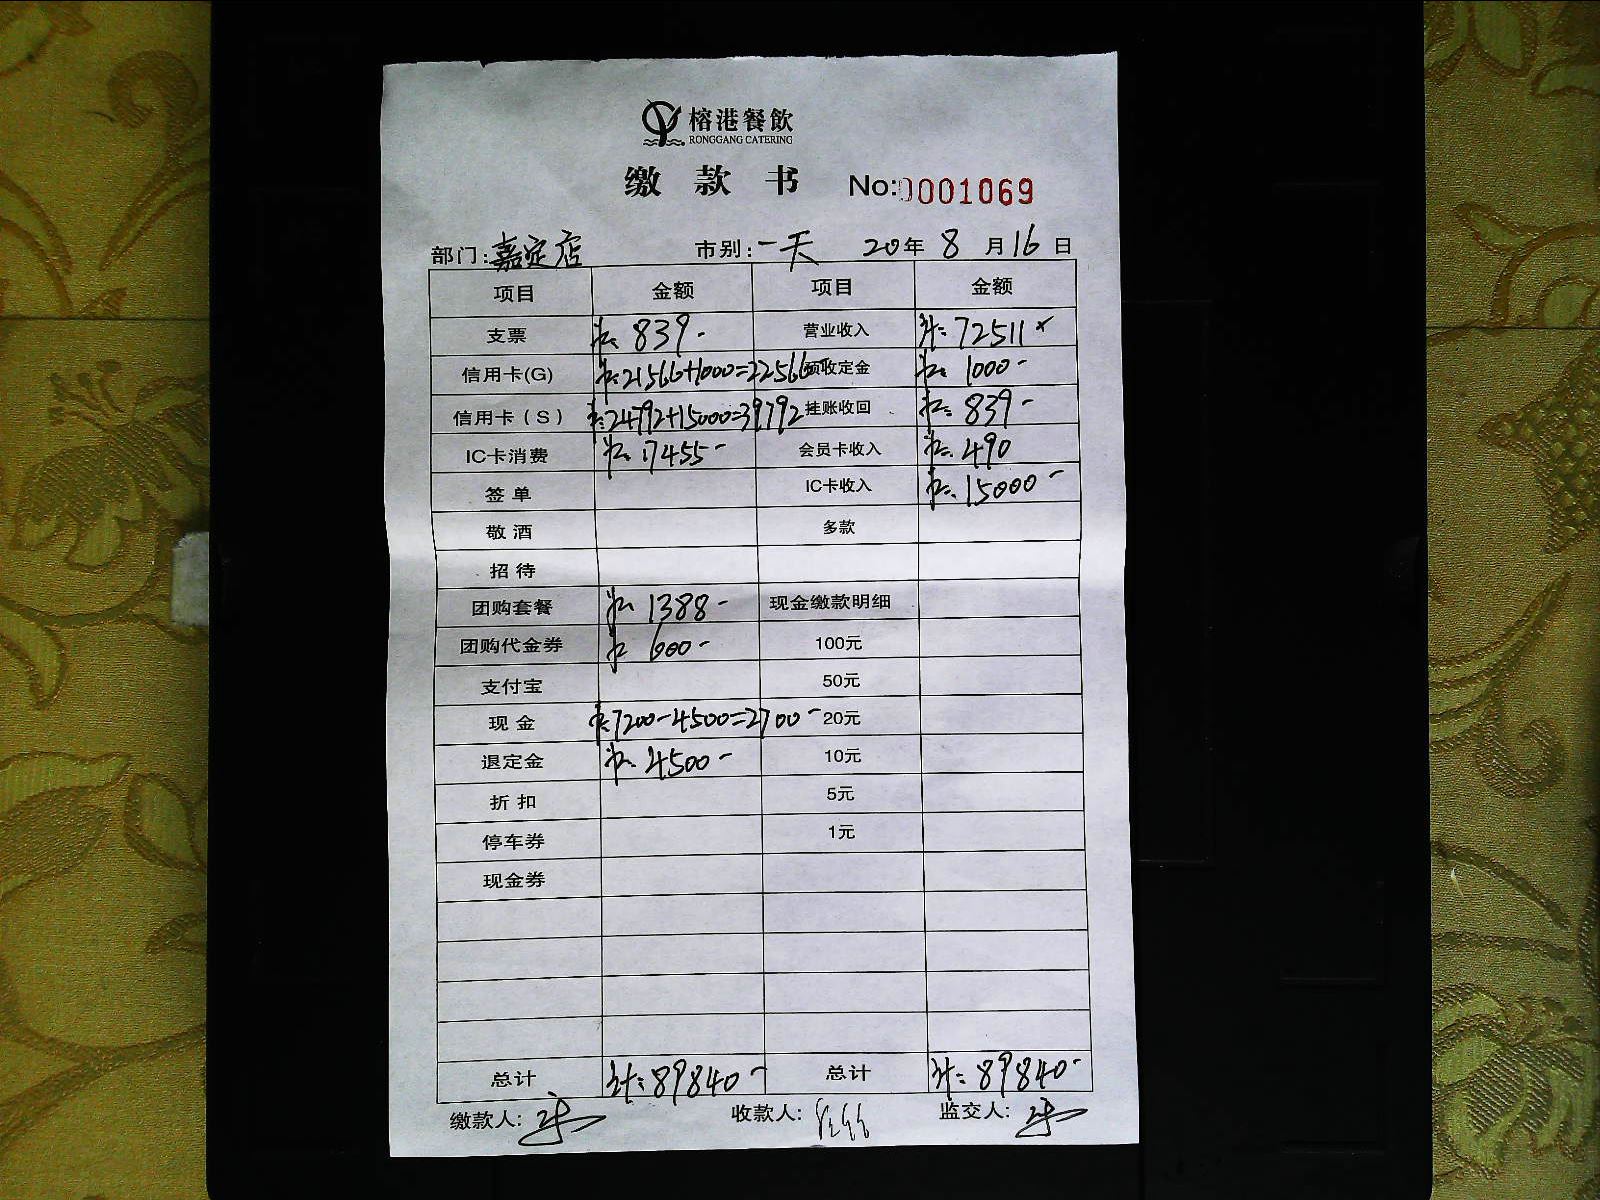 榕港餐飲
RONGGANG CATERING
缴款书 No:0001069
部门:嘉定店 市别:一天 20年8月16日
项目 金额 项目 金额
支票 839- 营业收入 72511
信用卡(G) 21566+1000=22566 预收定金 1000-
信用卡(S) 24792+15000=39792 挂账收回 839-
IC卡消费 17455- 会员卡收入 490
签单 IC卡收入 15000-
敬酒 多款
招待
团购套餐 1388- 现金缴款明细
团购代金券 600- 100元
支付宝 50元
现金 7200-4500=2700- 20元
退定金 4500- 10元
折扣 5元
停车券 1元
现金券
总计 计:89840- 总计 计:89840-
缴款人: 收款人: 监交人: